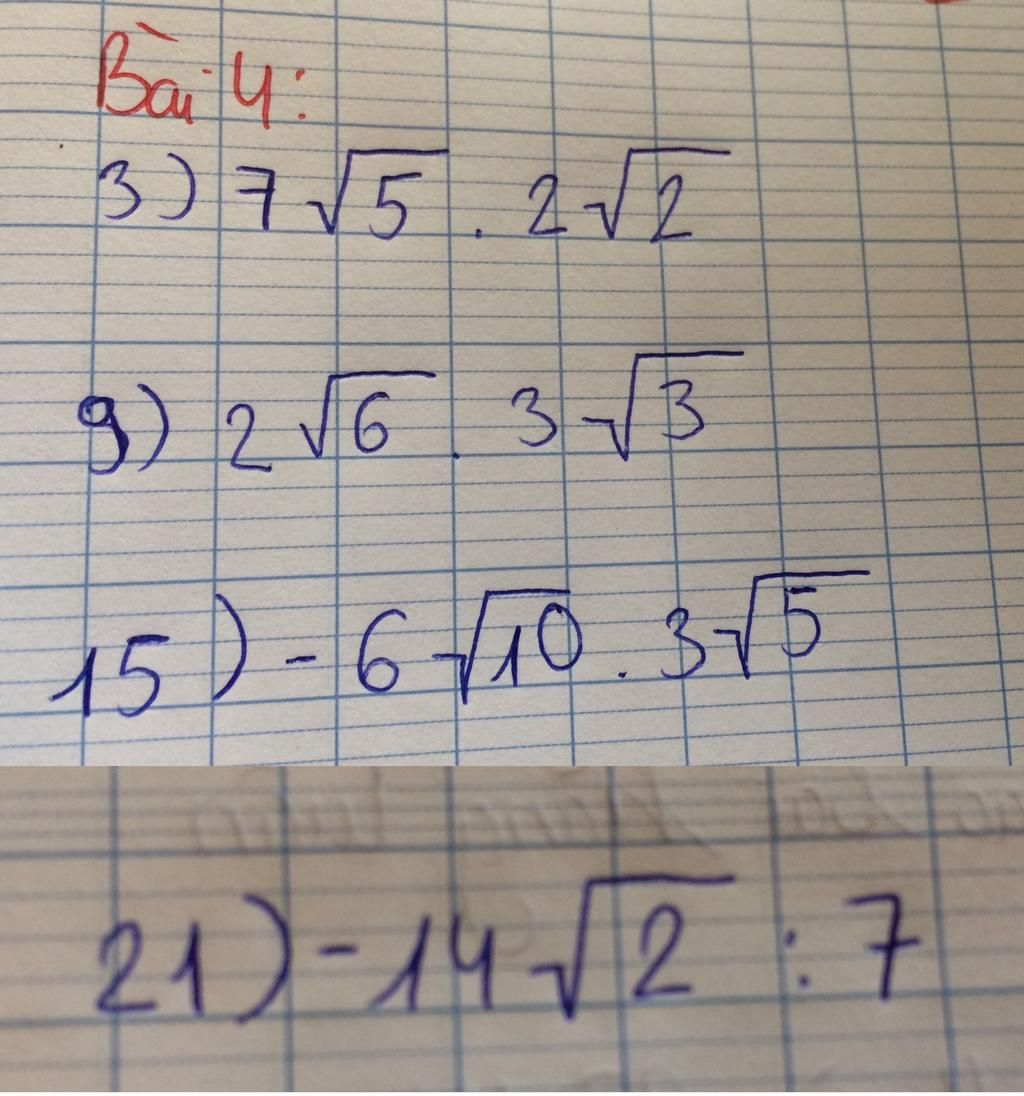 Bài 4:
3) 7√5 . 2√2
9) 2√6 . 3√3
15) - 6√10 . 3√5
21) - 14√2 : 7